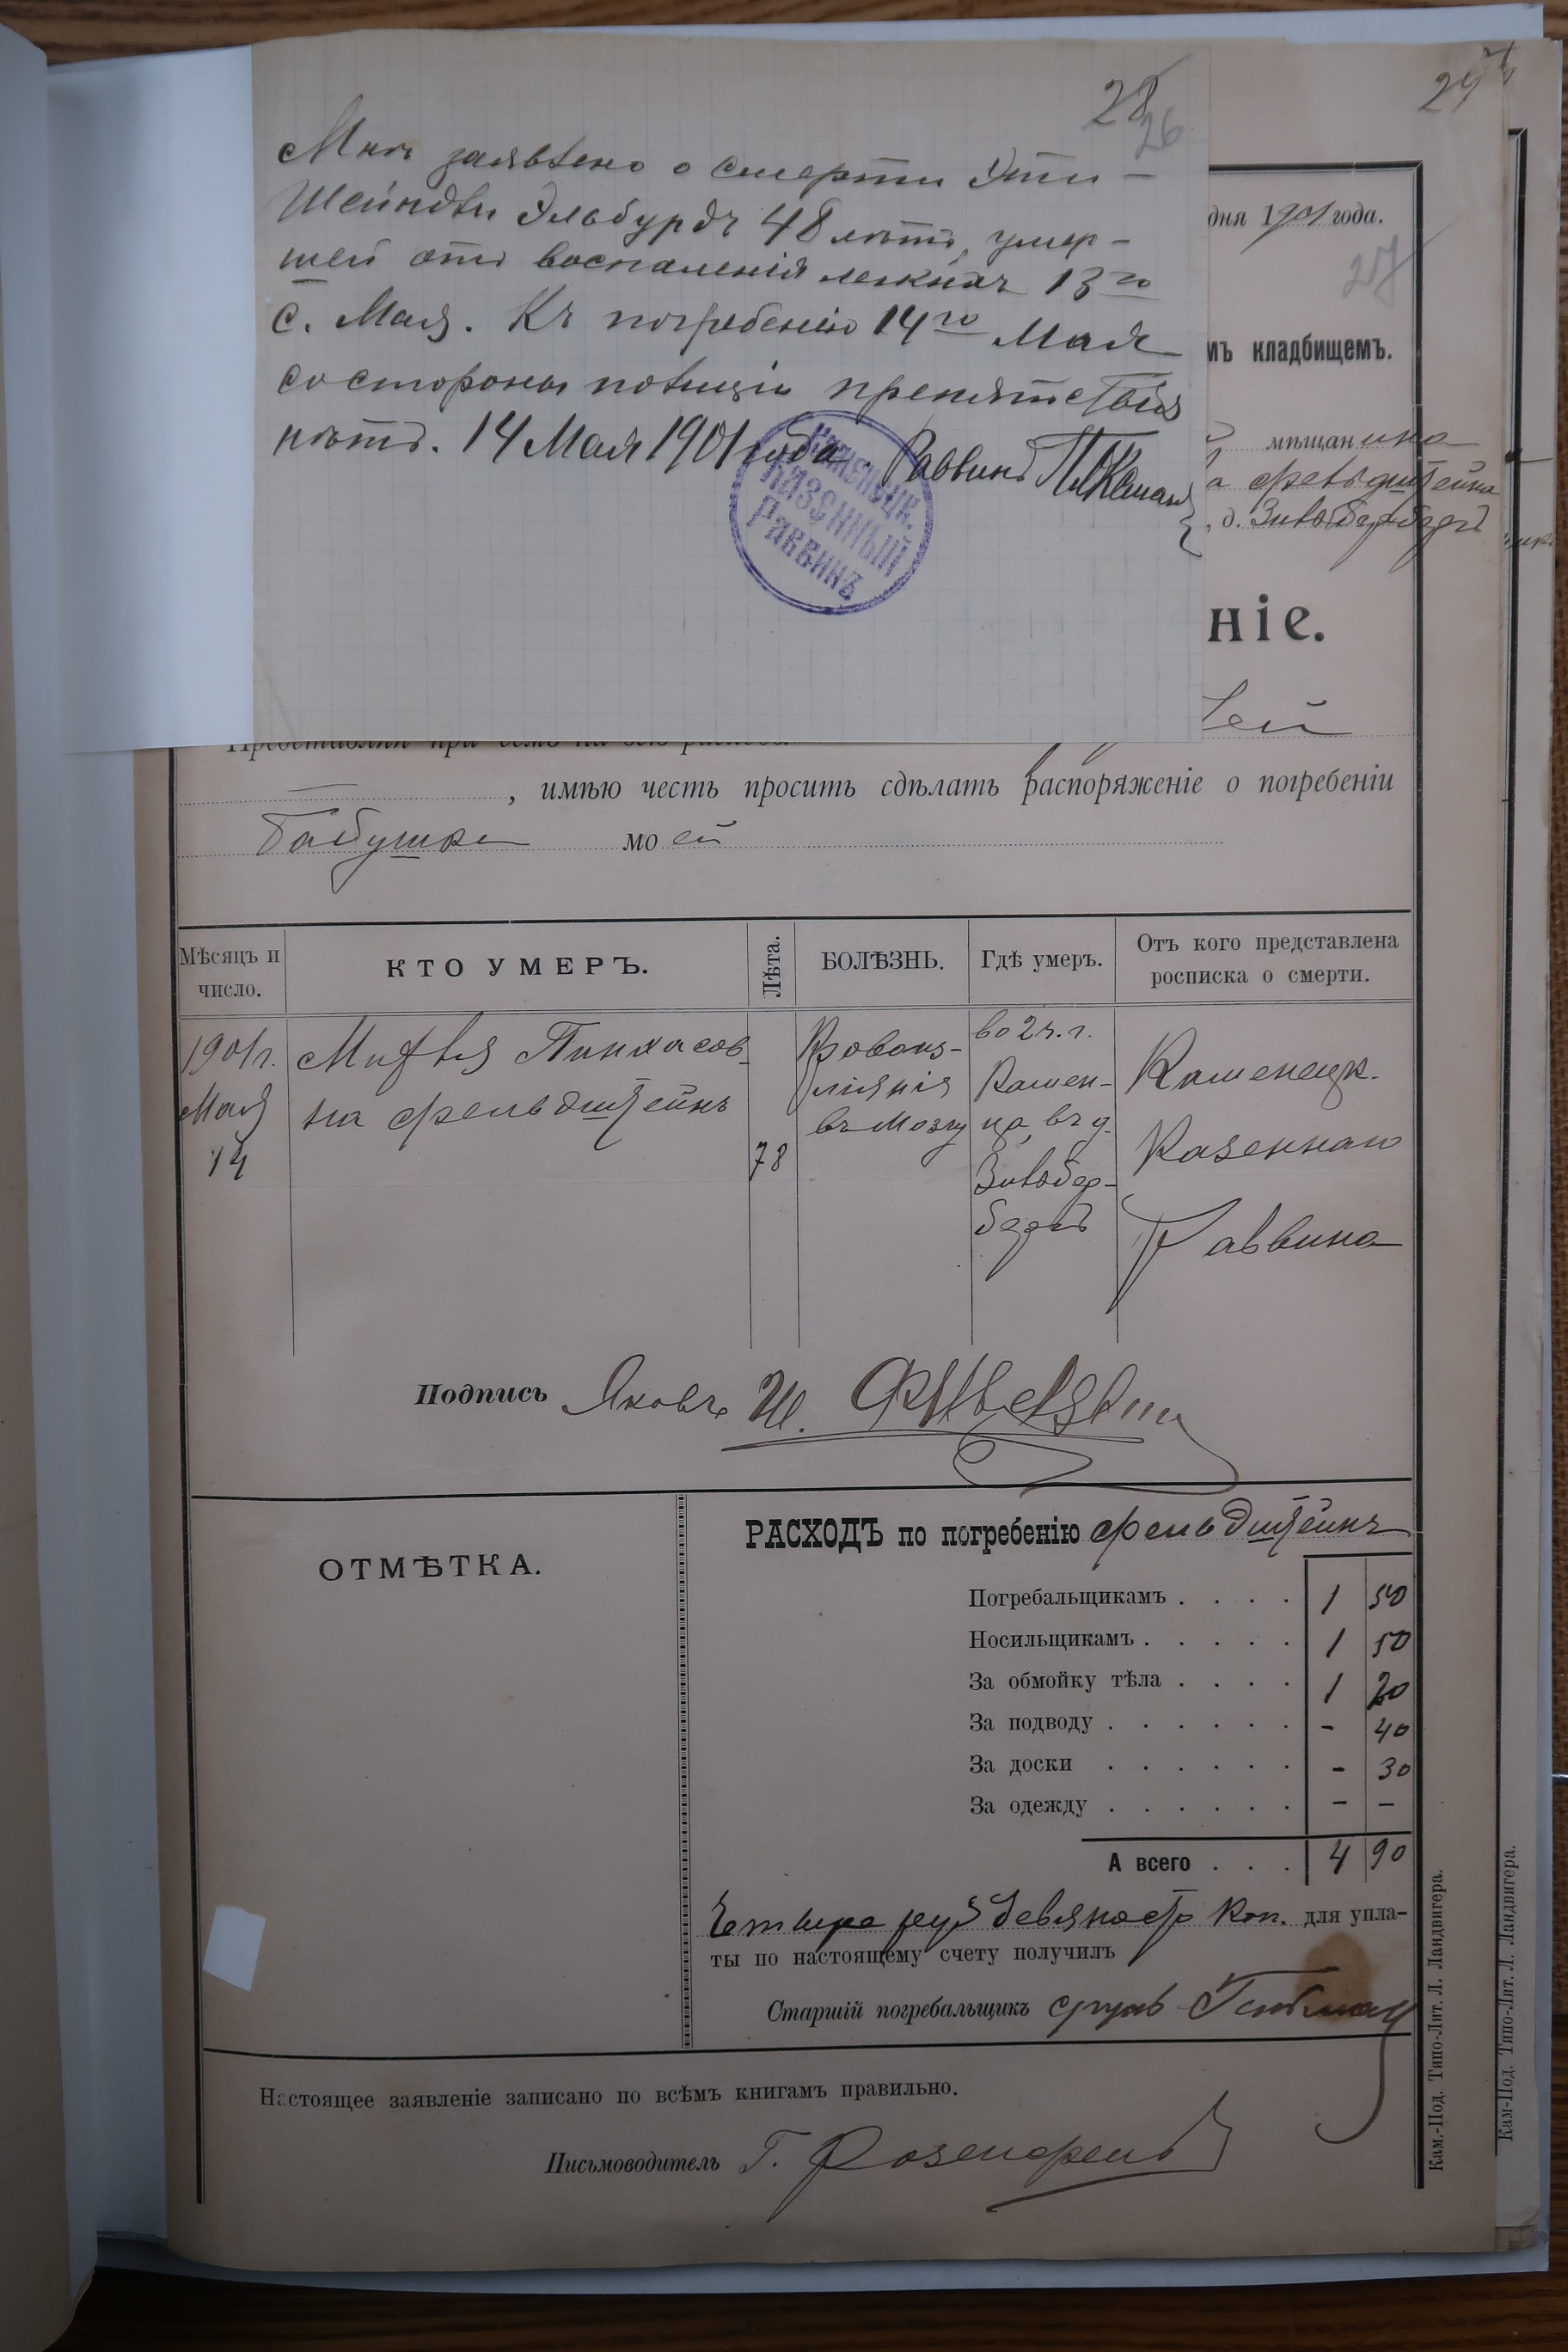 28
26
Мнѣ заявлено о смерти Эти-
Шейндли Эльбурдъ 48 лѣтъ, умер-
шей отъ воспаленія легкихъ 13го
с. Мая. Къ погребенію 14го Мая
со стороны полиціи препятствія
нѣтъ. 14 Мая 1901 года. Раввинъ
Каменецк.
Казенный
Раввинъ
29
27
дня 1901 года.
мъ кладбищемъ.
мѣщанина
а Фельдштейна
, д.
ніе.
лей
, имѣю честь просить сдѣлать распоряженіе о погребеніи
Бабушки моей
Мѣсяцъ и число.
КТО УМЕРЪ.
Лѣта.
БОЛѢЗНЬ.
Гдѣ умеръ.
Отъ кого представлена росписка о смерти.
1901 г.
Мая
14
Пинхасов-
на Фельдштейнъ
78
Кровоиз-
ліянія
въ мозгу
во 2 ч. г.
Камен-
ца, въ д.
Каменецк.
Казеннаго
Раввина
Подпись Яковъ Ш.
ОТМѢТКА.
РАСХОДЪ по погребенію Фельдштейнъ
Погребальщикамъ . . . . 1 50
Носильщикамъ . . . . . 1 50
За обмойку тѣла . . . . 1 20
За подводу . . . . . . - 40
За доски . . . . . . - 30
За одежду . . . . . . - -
А всего . . . 4 90
Четыре руб девяносто коп. для упла-
ты по настоящему счету получилъ
Старшій погребальщикъ
Настоящее заявленіе записано по всѣмъ книгамъ правильно.
Письмоводитель Г. Розенфельд
Кам.-Под. Типо-Лит. Л. Ландвигера.
Кам-Под. Типо-Лит. Л. Ландвигера.